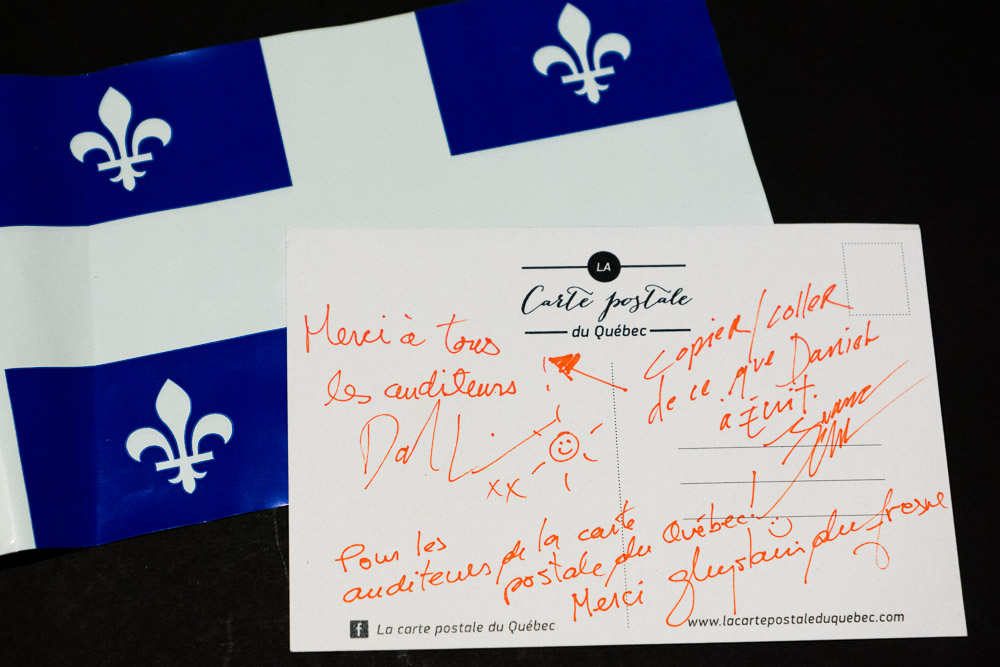 LA
Carte postale
du Québec
Merci à tous
les auditeurs
xx
copier/coller
de ce que Daniel
à Écrit.
Pour les
auditeurs de la carte
postale du Québec!
Merci ghyslain dufresne
La carte postale du Québec
www.lacartepostaleduquebec.com